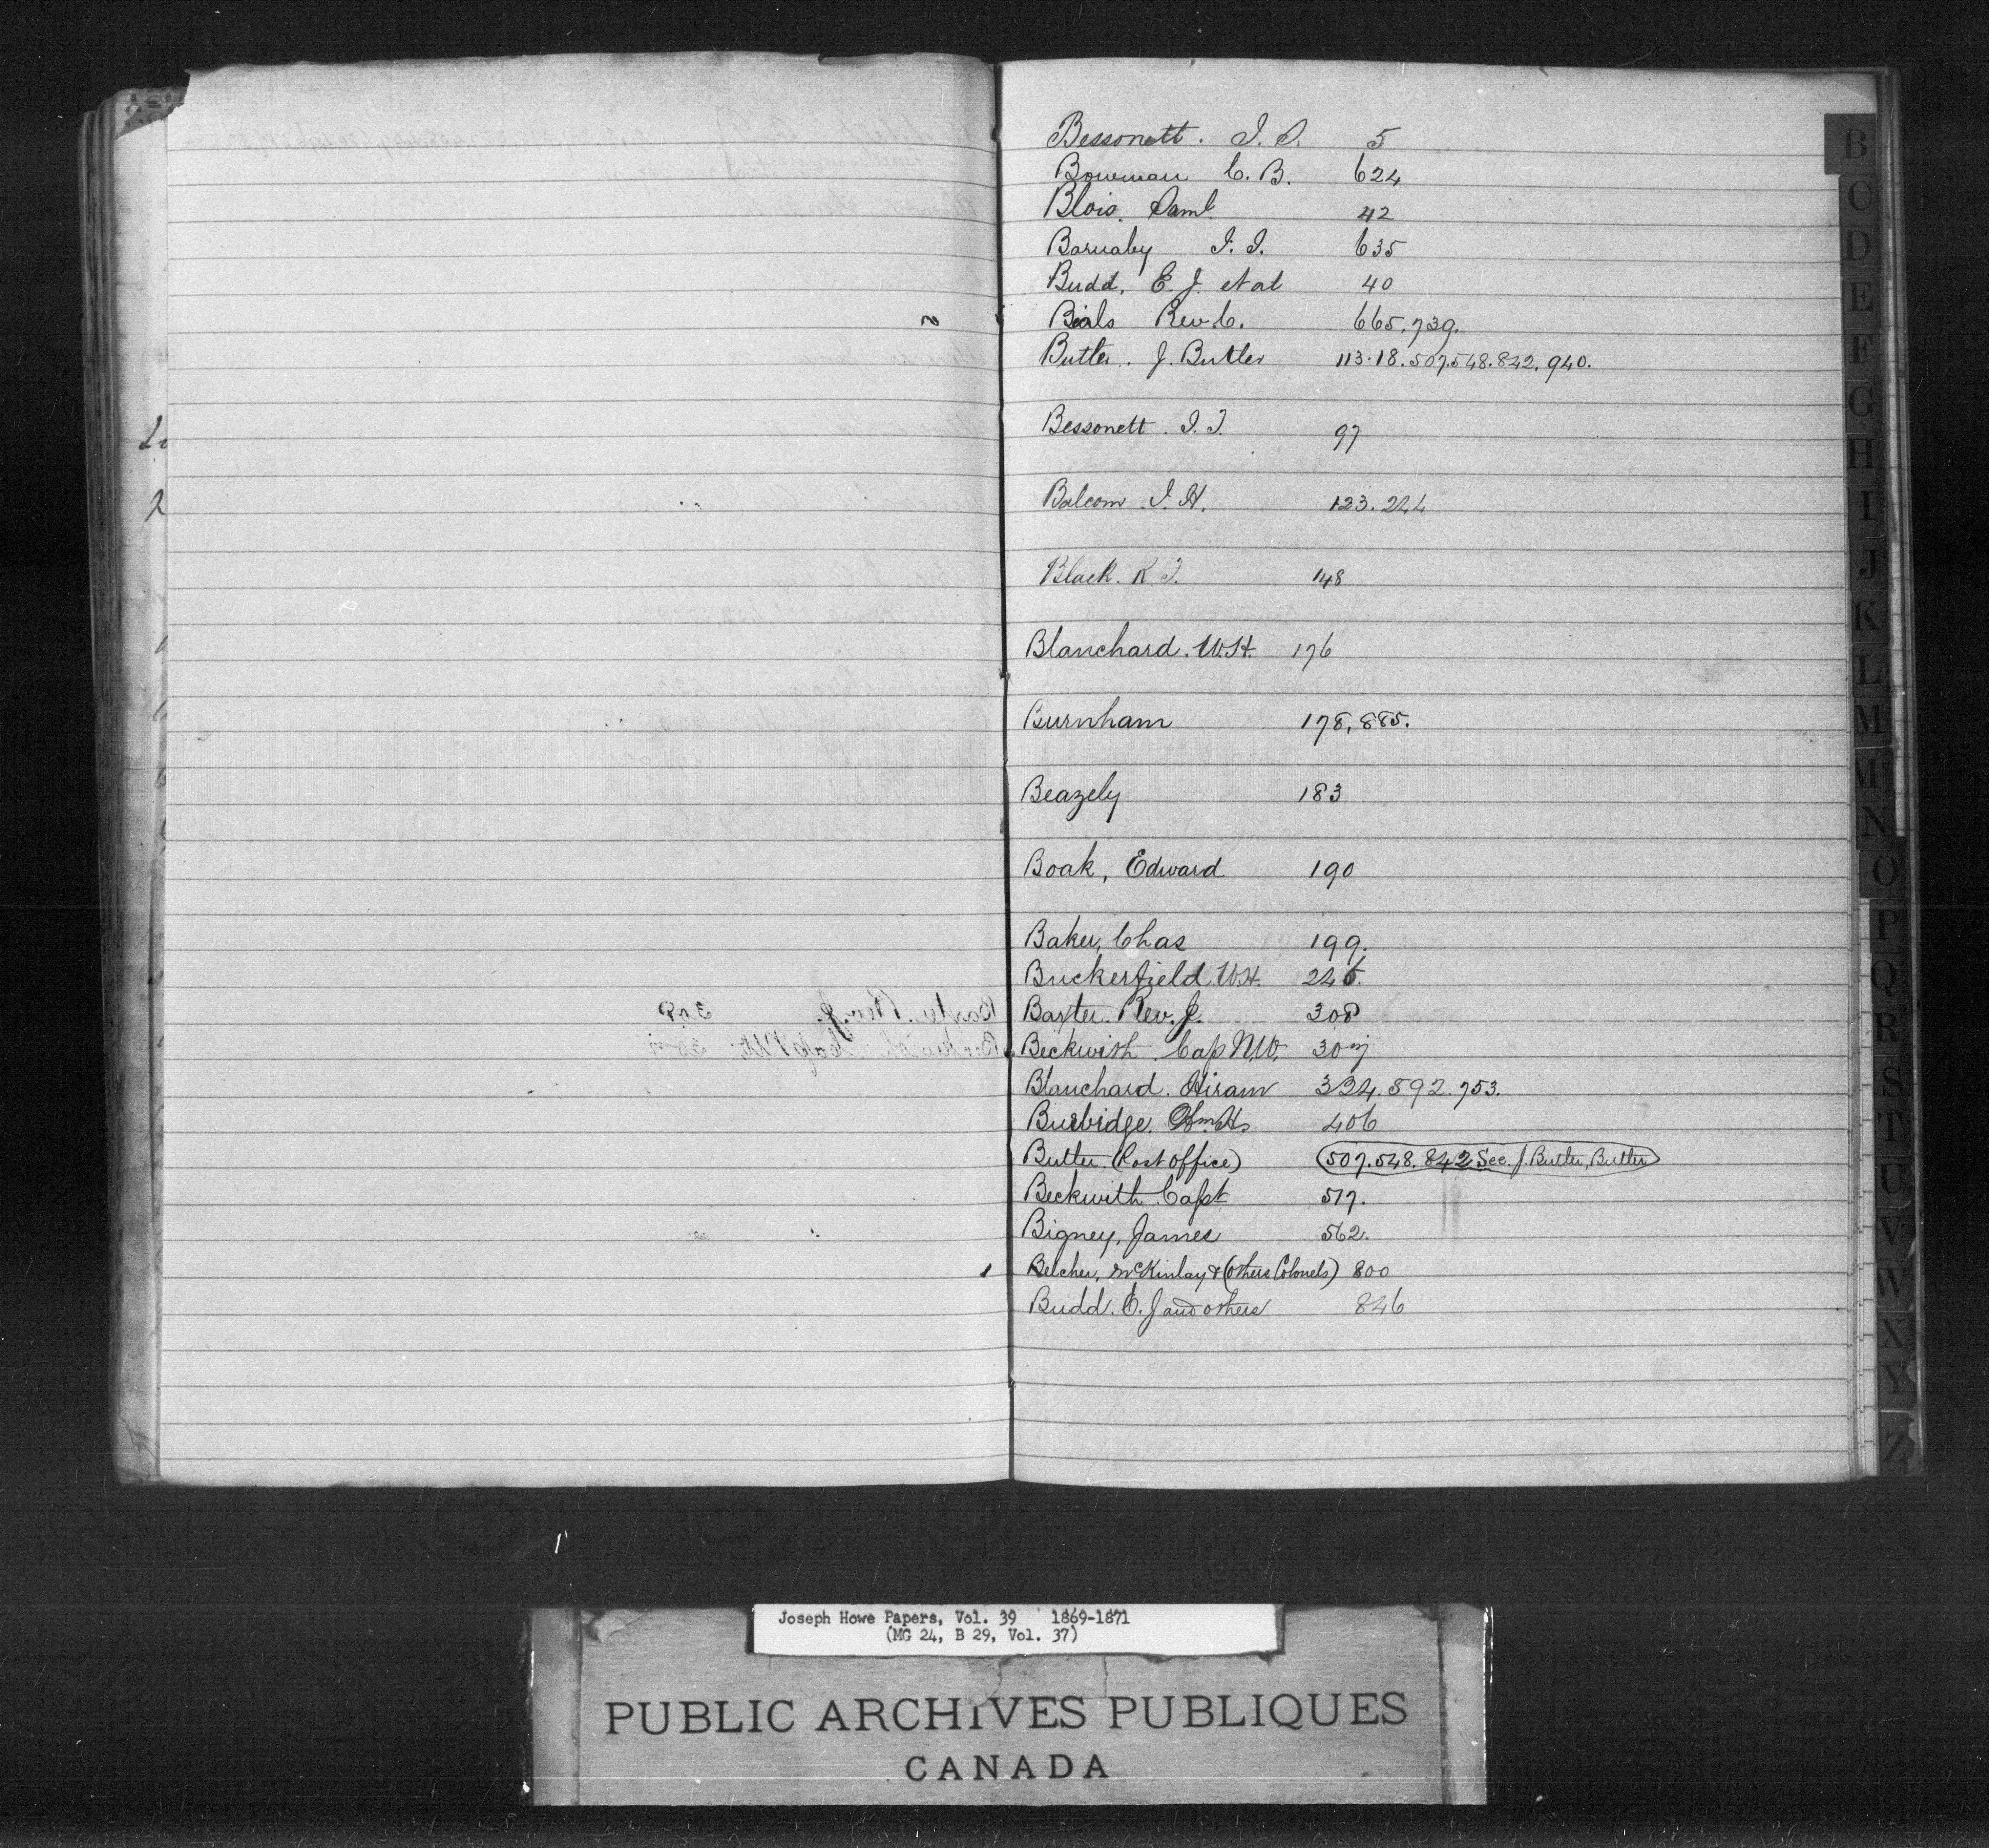 Bessonett. I. I. 5
Bowman C. B. 624
Blois. Saml 42
Barnaby I. I. 635
Budd, E. J. et al 40
Beals Rev C. 665.739.
Butler. J. Butler 113.18.507.548.842.940.
Bessonett. I. I. 97
Balcom I. H. 123.244
Black. R. I. 148
Blanchard. W.H. 176
Burnham 178,885.
Beazely 183
Boak, Edward 190
Baker, Chas 199.
Buckerfield W.H. 246.
Baxter. Rev. J. 308
Beckwith. Cap
Blanchard. Hiram 334.592.753.
Burbidge. 406
Butler (Post office) 507.548.842 See J. Butler, Butler
Beckwith Capt 517.
Bigney, James 562.
Belcher, McKinlay & (others Colonels) 800
Budd. E. J and others 846
B
C
D
E
F
G
H
I
J
K
L
M
Mc
N
O
P
Q
R
S
T
U
V
W
X
Y
Z
Joseph Howe Papers, Vol. 39 1869-1871
(MG 24, B 29, Vol. 37)
PUBLIC ARCHIVES PUBLIQUES
CANADA